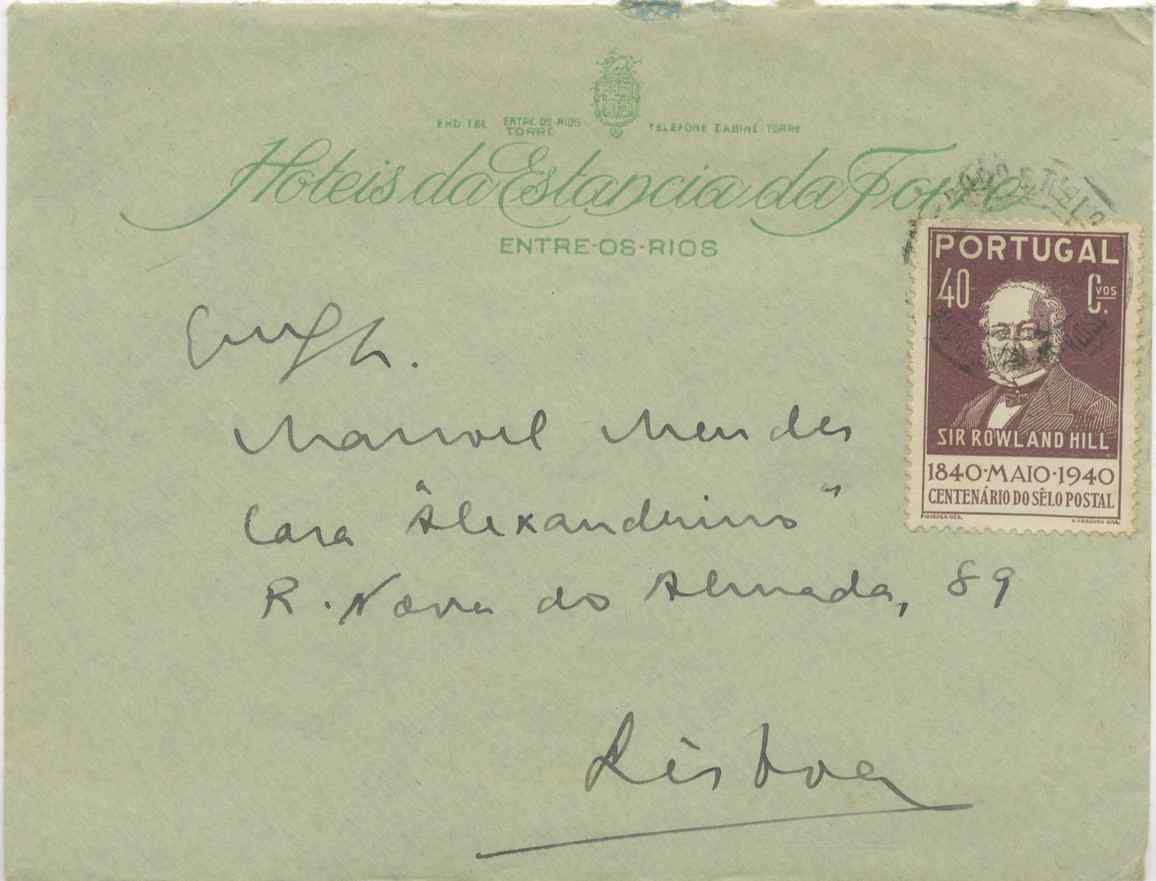 END. TEL. ENTRE-OS-RIOS TORRE
TELEFONE CABINE-TORRE
Hoteis da Estancia da Torre
ENTRE-OS-RIOS
PORTUGAL
40 C.VOS
SIR ROWLAND HILL
1840·MAIO·1940
CENTENÁRIO DO SÊLO POSTAL
Manuel Mendes
Casa "Alexandrino"
R. Nova do Almada, 89
Lisboa